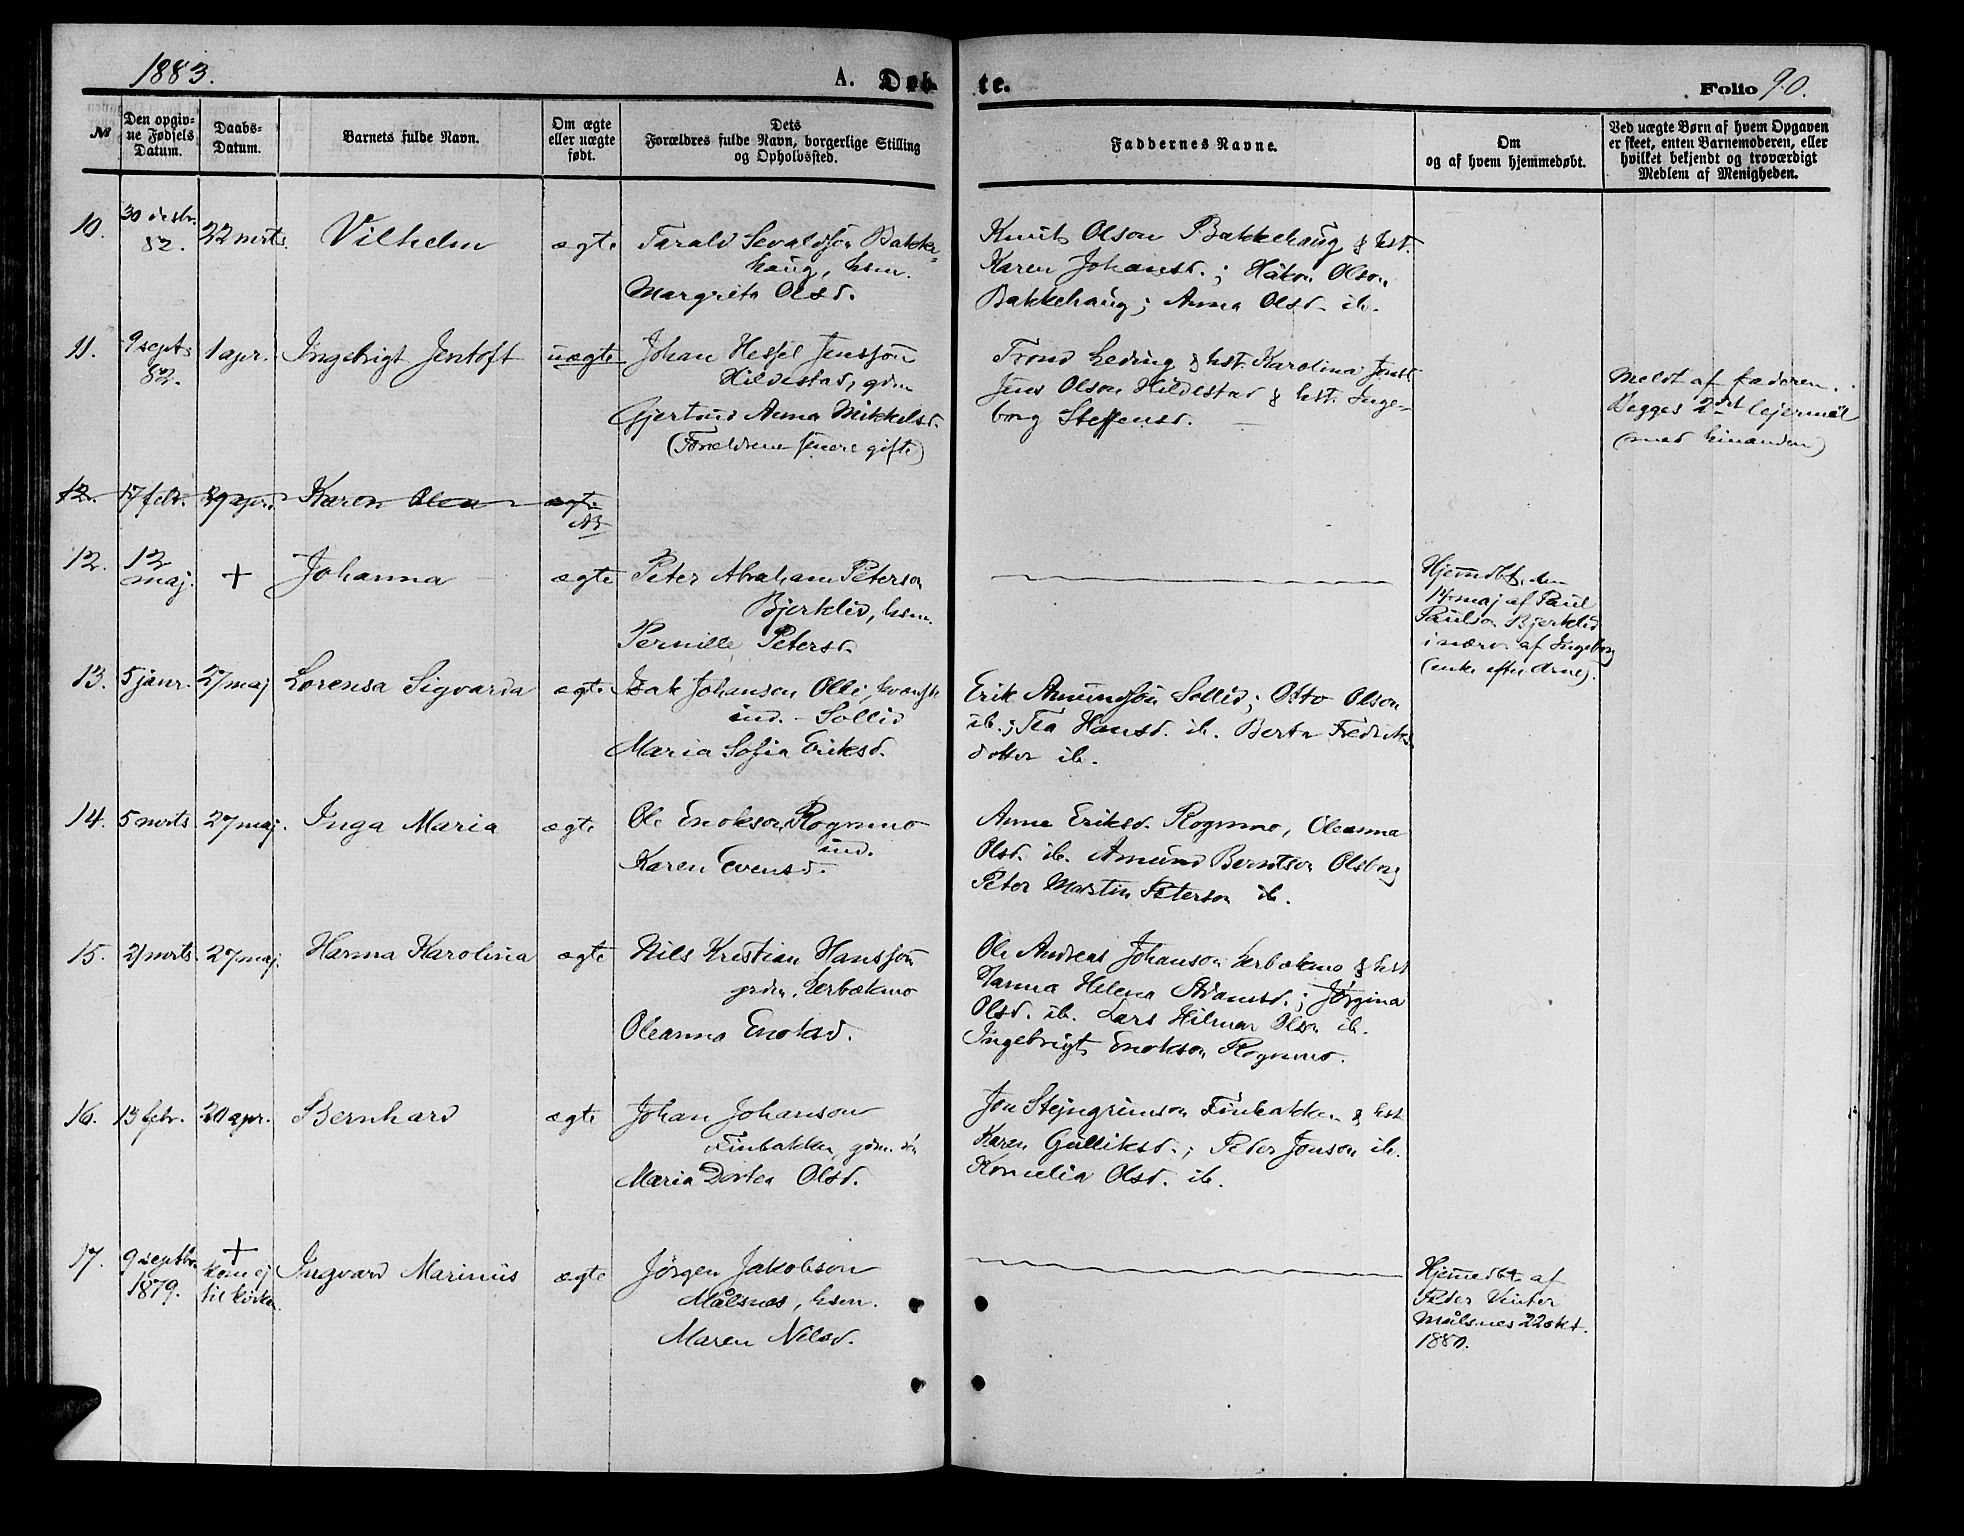 1883.
A. Døb- te.
Folio 90.
№
Den opgiv-
ne Fødsels
Datum.
Daabs-
Datum.
Barnets fulde Navn.
Om ægte
eller uægte
født.
Dets
Forældres fulde Navn, borgerlige Stilling
og Opholdssted.
Faddernes Navne.
Om
og af hvem hjemmedøbt.
Ved uægte Børn af hvem Opgaven
er skeet, enten Barnemoderen, eller
hvilket bekjendt og troværdigt
Medlem af Menigheden.
10.
30 desbr.
82.
22 mrts.
Vilhelm
ægte
Tarald Sevaldsøn Bakke=
haug, hsm.
Margrita Olsd.
Knut Olson Bakkehaug & hst.
Karen Johansd.; Håkon Olson
Bakkehaug; Anna Olsd. ib.
11.
9 sept.
82.
1 apr.
Ingebrigt Jentoft
uægte
Johan Hessel Jenssøn
Hildestad, gdm
Gjertrud Anna Mikkelsd.
(Forældrene senere gifte)
Trond Leding & hst. Karolina Jensd
Jens Olson Hildestad & hst. Inge-
borg Steffensd.
Meldt af faderen.
Begges 2det lejermål
(med hinanden)
12. 17 febr. 29 apr. Karen Olea ægte
NB
12.
12
maj.
+
Johanna
ægte
Peter Abraham Peterson
Bjerklid, hsm.
Pernille Petersd.
Hjemdbt. den
14 maj af Paul
Paulson Bjerklid
i nærv. af Ingeborg
(enke efter Arne).
13.
5 janr.
27 maj
Lorensa Sigvarda
ægte
Isak Johanson Olli, kvænsk
ind. - Sollid
Maria Sofia Eriksd.
Erik Amundsøn Sollid; Otto Olson
ib.; Tea Hansd. ib. Berta Fredriks
dotter ib.
14.
5 mrts
27 maj.
Inga Maria
ægte
Ole Enokson Rognmo
ind.
Karen Evensd.
Anna Eriksd. Rognmo, Oleanna
Olsd. ib. Amund Berntson Olsborg
Peter Martin Peterson ib.
15.
21 mrts.
27 maj.
Hanna Karolina
ægte
Nils Kristian Hanssøn
grdm. Lerbækmo
Oleanna Enoksd.
Ole Andreas Johanson Lerbækmo & hst
Hanna Helena Adamsd.; Jørgina
Olsd. ib. Lars Hilmar Olson ib.
Ingebrigt Enokson Rognmo.
16.
13 febr.
20 apr.
Bernhard
ægte
Johan Johanson
Finbakken, gdm. søn
Maria Dortea Olsd.
Jon Stejngrimson Finbakken & hst
Karen Gulliksd.; Peder Jonson ib.
Kornelia Olsd. ib.
17.
9 septbr.
1879.
+
kom ej
til kirken
Ingvard Marinius
ægte
Jørgen Jakobson
Målsnes, hsm.
Maren Nilsd.
Hjemedbt. af
Peder Vinter
Målsnes 22 okt.
1880.